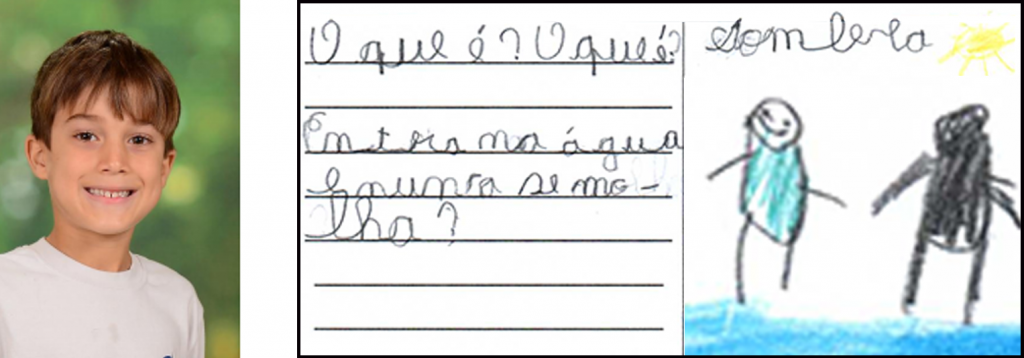 O que é? O que é?
Entra na água
E nunca se mo-
lha?
Sombra